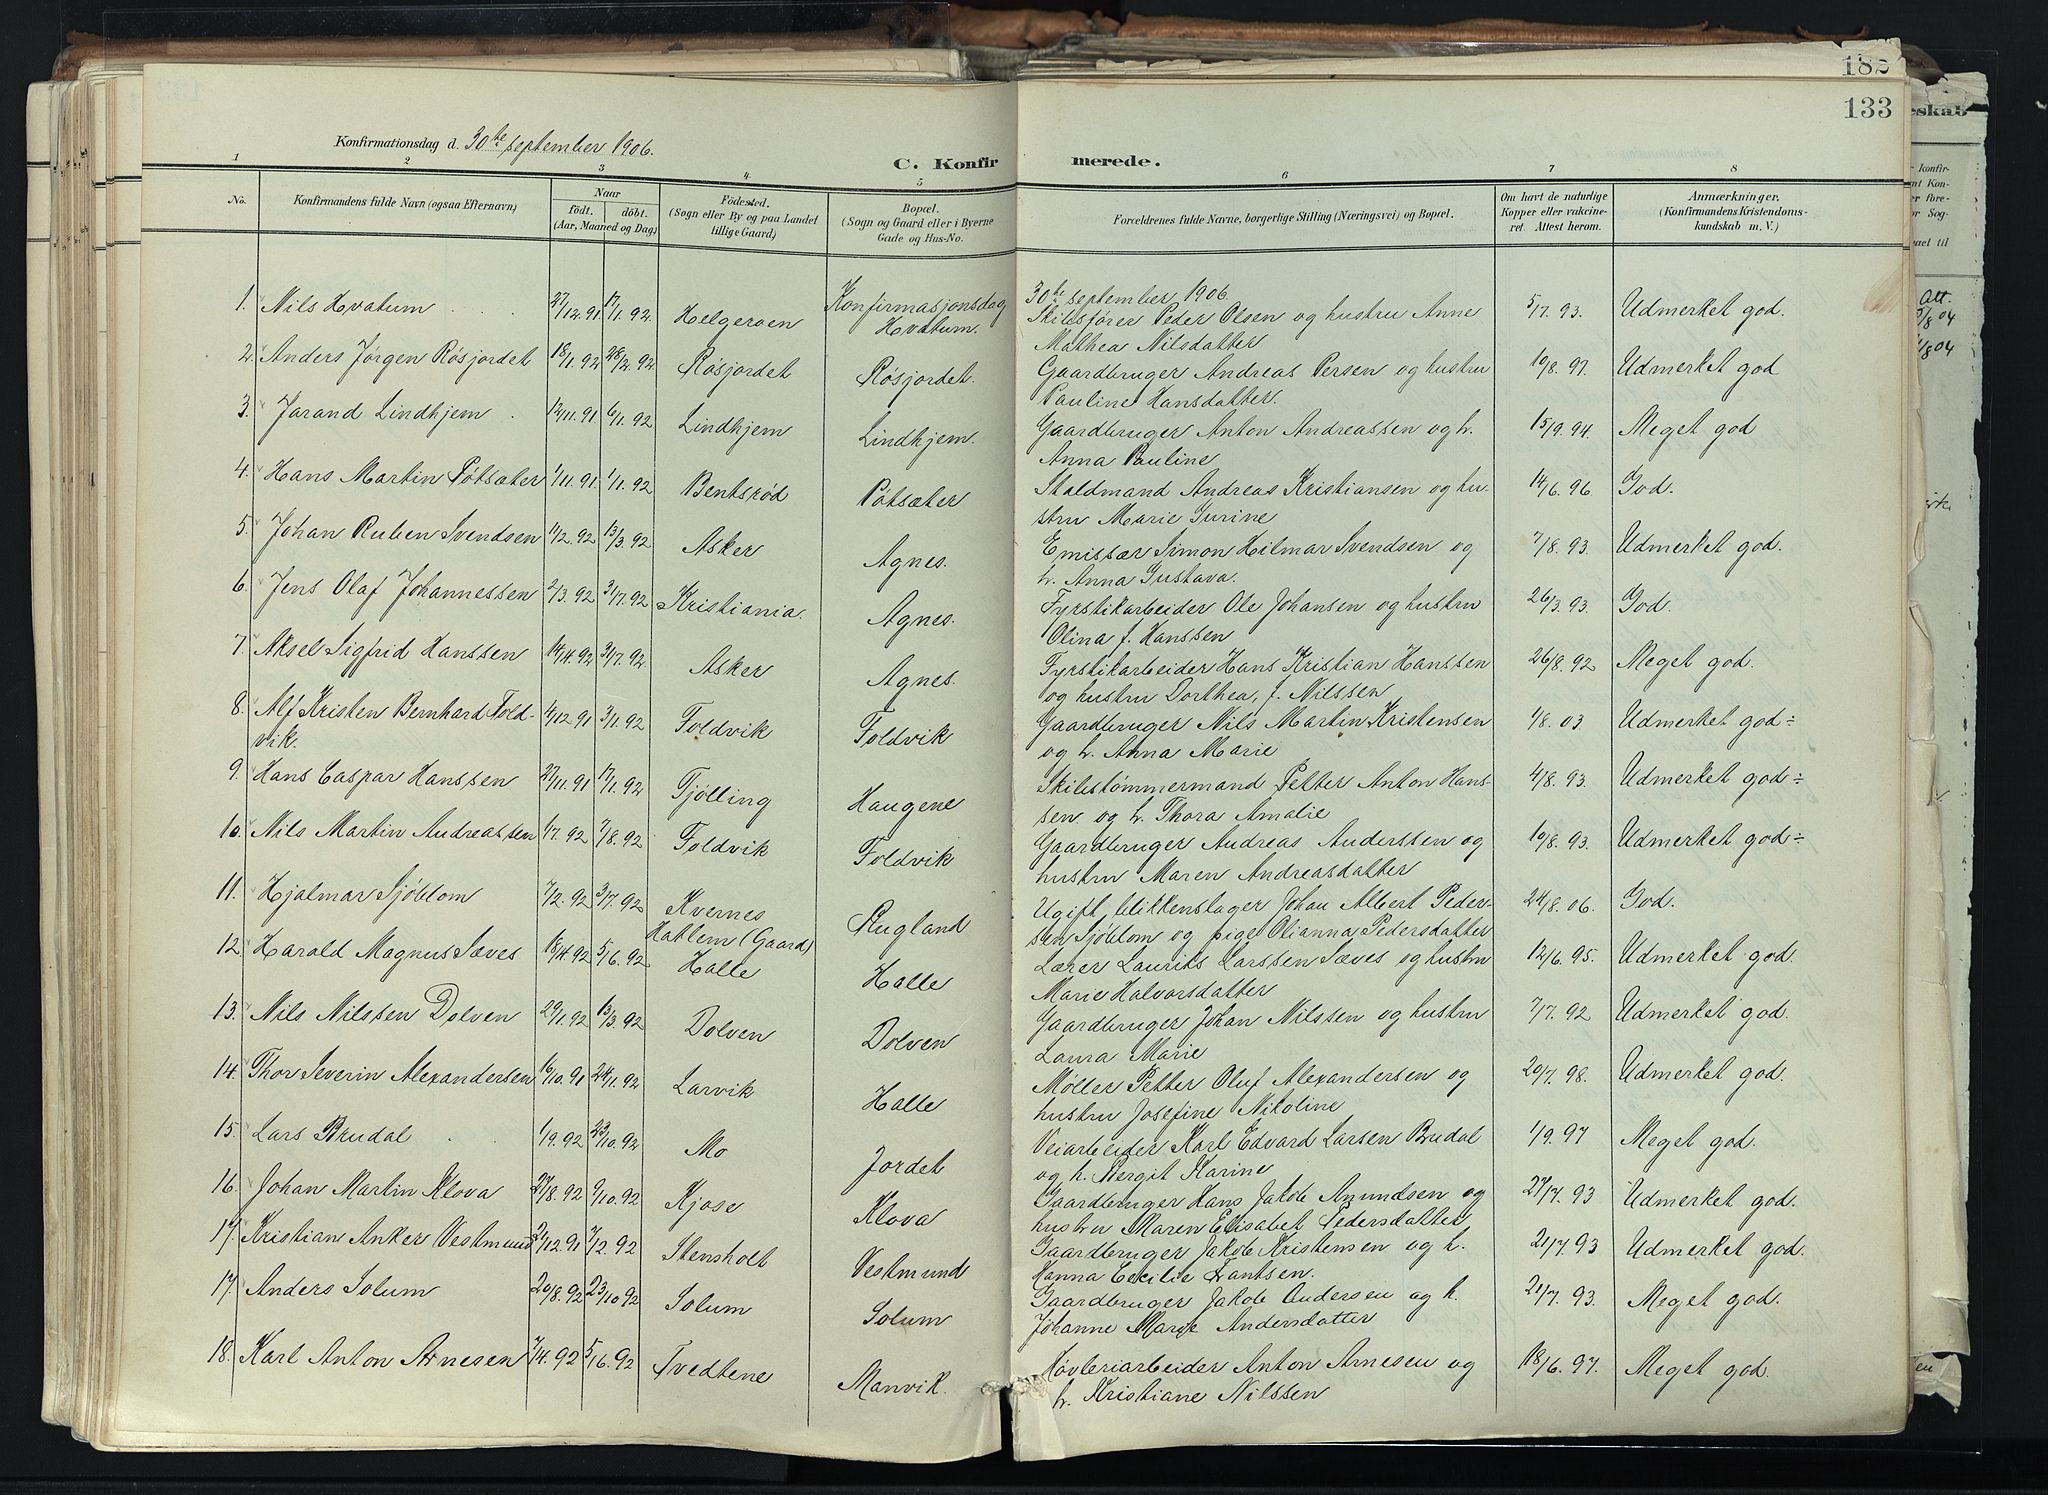 182
133
Konfirmationsdag d. 30te september 1906.
C. Konfirmerede.
1 2 3 4 5 6 7 8
No. Konfirmandens fulde Navn (ogsaa Efternavn) Naar født. døbt. (Aar, Maaned og Dag) Fødested. (Sogn eller By og paa Landet tillige Gaard) Bopæl. (Sogn og Gaard eller i Byerne Gade og Hus-No. Forældrenes fulde Navne, borgerlige Stilling (Næringsvei) og Bopæl. Om havt de naturlige Kopper eller vakcineret. Attest herom. Anmærkninger. (Konfirmandens Kristendomskundskab m. V.)
Konfirmasjonsdag 30te september 1906.
1. Nils Hvatum 27/12.91. 17/1.92. Helgeroen Hvatum. Skibsfører Peder Olsen og hustru Anne 5/7.93. Udmerket god.
Mathea Nilsdatter
2. Anders Jørgen Røsjordet 18/1.92 28/2.92. Røsjordet Røsjordet. Gaardbruger Andreas Persen og hustru 10/8.97. Udmerket god
Pauline Hansdatter.
3. Jarand Lindhjem 12/11.91 6/1.92 Lindhjem Lindhjem. Gaardbruger Anton Andreassen og h. 15/9.94. Meget god
Anna Pauline
4. Hans Martin Pøtsæter 1/11.91 1/1.92 Bentsrød Pøtsæter Staldmand Andreas Kristiansen og hu- 14/6.96. God.
stru Marie Gurine
5. Johan Ruben Svendsen 11/2.92 13/3.92 Asker Agnes. Emissær Simon Hilmar Svendsen og 7/8.93. Udmerket god.
h. Anna Gustava.
6. Jens Olaf Johannessen 2/3.92 31/7.92 Kristiania. Agnes. Fyrstikarbeider Ole Johansen og hustru 26/3.93. God.
Olina f. Hanssen
7. Aksel Sigfrid Hanssen 14/4.92 31/7.92. Asker Agnes. Fyrstikarbeider Hans Kristian Hanssen 26/8.92 Meget god.
og hustru Dorthea, f. Nilssen
8. Alf Kristen Bernhard Fold- 4/12.91 3/1.92 Foldvik Foldvik Gaardbruger Nils Martin Kristensen 4/8.03 Udmerket god÷
vik. og h. Anna Marie
9. Hans Caspar Hanssen 27/11.91 17/1.92 Tjølling Haugene Skibstømmermand Petter Anton Hans- 4/8.93. Udmerket god÷
sen og h. Thora Amalie
10. Nils Martin Andreassen 1/7.92 7/8.92 Foldvik Foldvik Gaardbruger Andreas Anderssen og 10/8.93. Udmerket god÷
hustru Maren Andreasdatter
11. Hjalmar Sjøblom 7/2.92 3/7.92 Kvernes Rugland Ugift blikkenslager Johan Albert Peder- 24/8.06. God.
sen Sjøblom og pige Olianna Pedersdatter
12. Harold Magnus Sæves 18/4.92 5/6.92 Hatlem (Gaard) Halle Halle Lærer Lauriks Larssen Sæves og hustru 12/6.95. Udmerket god.
Marie Halvorsdatter
13. Nils Nilssen Dolven 29/1.92 13/3.92 Dolven Dolven Gaardbruger Johan Nilssen og hustru 7/7.92 Udmerket god.
Laura Marie
14. Thor Severin Alexandersen 16/10.91 24/1.92 Larvik Halle Møller Petter Oluf Alexandersen og 20/7.98. Udmerket god.
hustru Josefine Nikoline
15. Lars Brudal 1/9.92 23/10.92 Mo Jordet Veiarbeider Karl Edvard Larsen Brudal 1/9.97 Meget god.
og h. Bergit Karine
16. Johan Martin Klova 27/8.92 9/10.92 Kjose Klova Gaardbruger Hans Jakob Amundsen og 27/7.93 Udmerket god.
hustru Maren Elisabet Pedersdatter
17. Kristian Anker Vestmund 21/12.91 7/2.92 Stensholt Vestmund Gaardbruger Jakob Kristensen og h. 21/7.93 Udmerket god.
Hanna Cecilie Frantsen.
17. Anders Solum 20/8.92 23/10 92 Solum Solum Gaardbruger Jakob Andersen og h. 21/7.93. Meget god.
Johanne Marie Andersdatter
18. Karl Anton Arnesen 7/4.92 5/6.92 Tvedtene Manvik. Høvleriarbeider Anton Arnesen og 18/6.97. Meget god.
h. Kristiane Nilssen